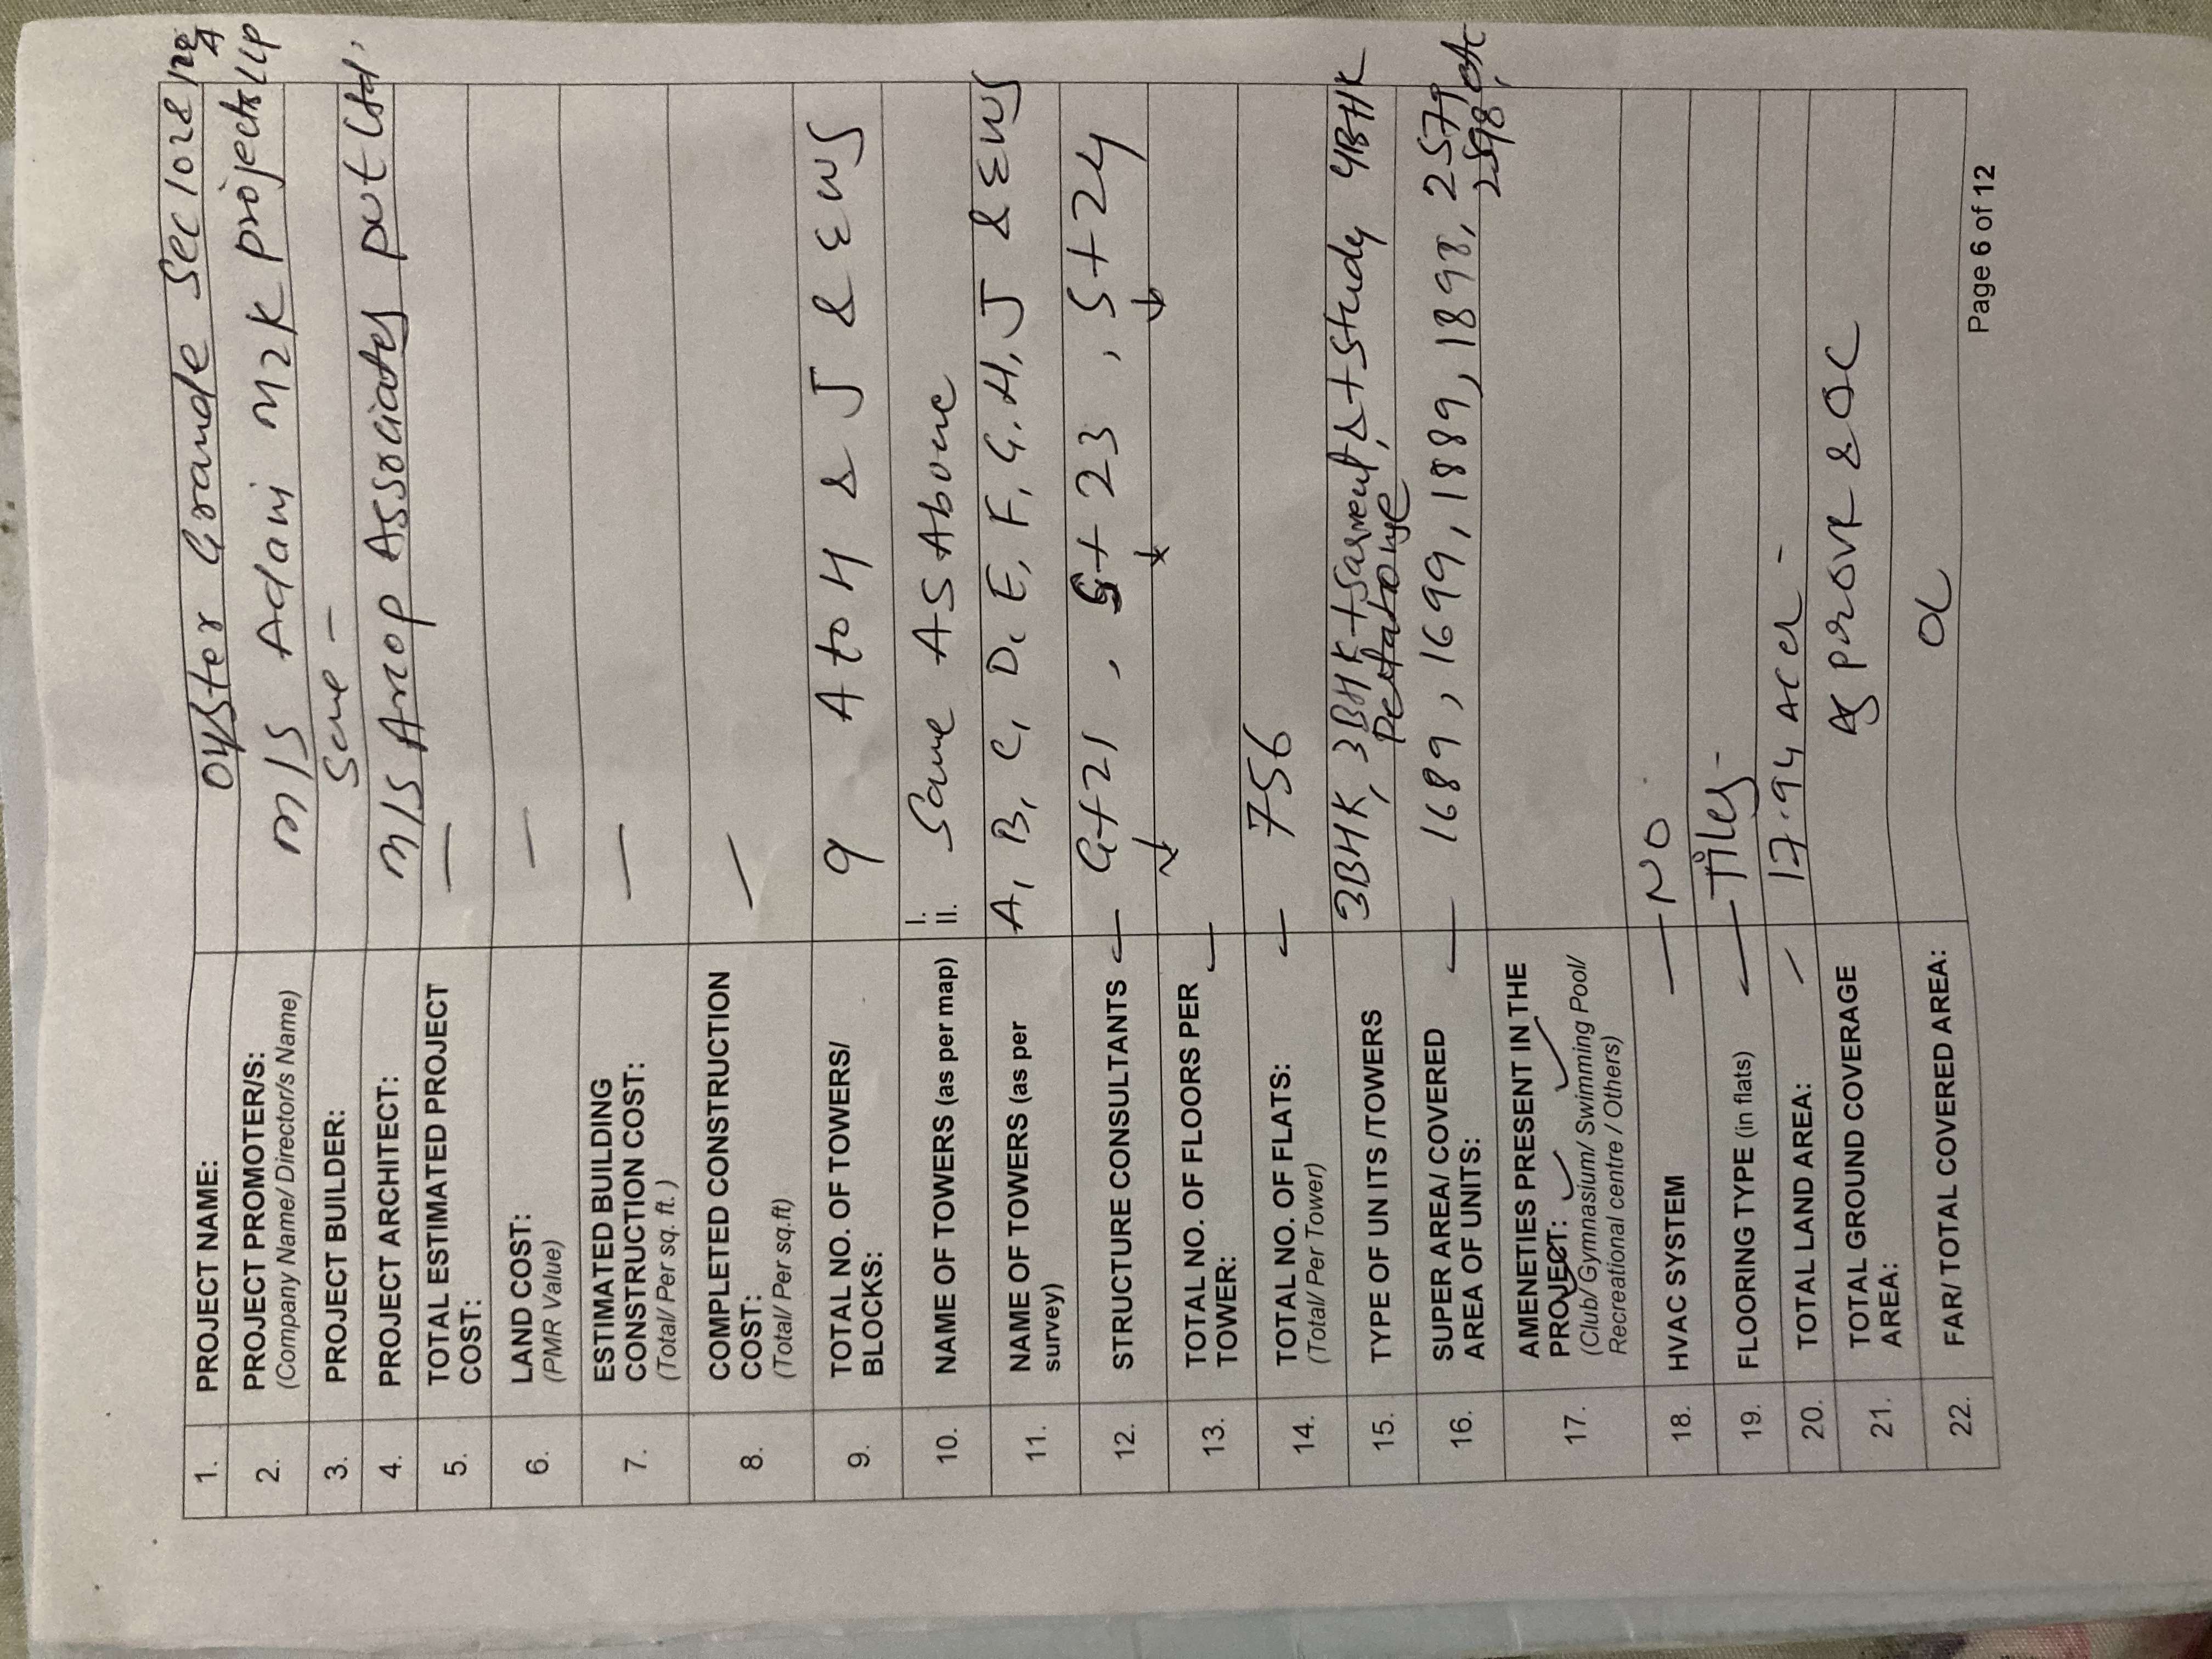 1. PROJECT NAME: Oyster Grande Sec 102 &
2. PROJECT PROMOTER/S: M/S Adani M2K projects LLP
(Company Name/ Director/s Name)
3. PROJECT BUILDER: Same -
4. PROJECT ARCHITECT: M/S Arcop Associates pvt Ltd.
5. TOTAL ESTIMATED PROJECT COST: —
6. LAND COST: —
(PMR Value)
7. ESTIMATED BUILDING CONSTRUCTION COST: —
(Total/ Per sq. ft. )
8. COMPLETED CONSTRUCTION COST: —
(Total/ Per sq.ft)
9. TOTAL NO. OF TOWERS/ BLOCKS: 9 A to H & J & EWS
10. NAME OF TOWERS (as per map) I.
II. Same As Above
11. NAME OF TOWERS (as per survey) A, B, C, D, E, F, G, H, J & EWS
12. STRUCTURE CONSULTANTS — G+21, S+23, S+24
13. TOTAL NO. OF FLOORS PER TOWER: —
14. TOTAL NO. OF FLATS: — 756
(Total/ Per Tower)
15. TYPE OF UNITS /TOWERS 3BHK, 3BHK + Study 4BHK
16. SUPER AREA/ COVERED AREA OF UNITS: — 1689, 1699, 1889, 1898, 2579
2598, etc
17. AMENETIES PRESENT IN THE PROJECT:
(Club/ Gymnasium/ Swimming Pool/ Recreational centre / Others)
18. HVAC SYSTEM — NO
19. FLOORING TYPE (in flats) — Tiles -
20. TOTAL LAND AREA: 17.94 Acer -
21. TOTAL GROUND COVERAGE AREA: As & OC
22. FAR/ TOTAL COVERED AREA:
Page 6 of 12